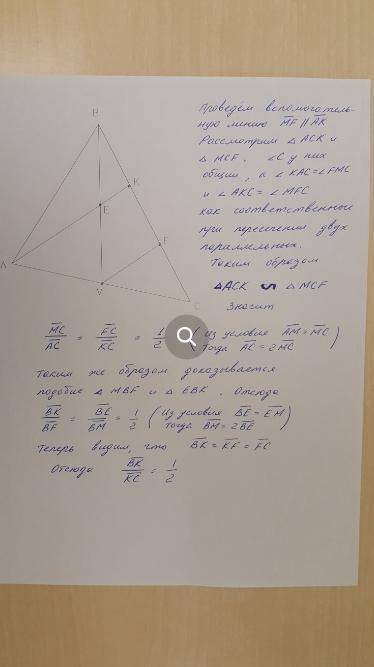 B
K
E
F
A
M
C
Проведём вспомогатель-
ную линию MF || AK
Рассмотрим △ ACK и
△ MCF. ∠C у них
общий, а ∠KAC = ∠FMC
и ∠AKC = ∠MFC
как соответственные
при пересечении двух
параллельных.
Таким образом
△ACK ∽ △MCF
Значит
MC/AC = FC/KC = 1/2 (Из условия AM = MC Тогда AC = 2MC)
Таким же образом доказывается
подобие △ MBF и △ EBK. Отсюда
BK/BF = BE/BM = 1/2 (Из условия BE = EM Тогда BM = 2BE)
Теперь видим, что BK = KF = FC
Отсюда BK/KC = 1/2